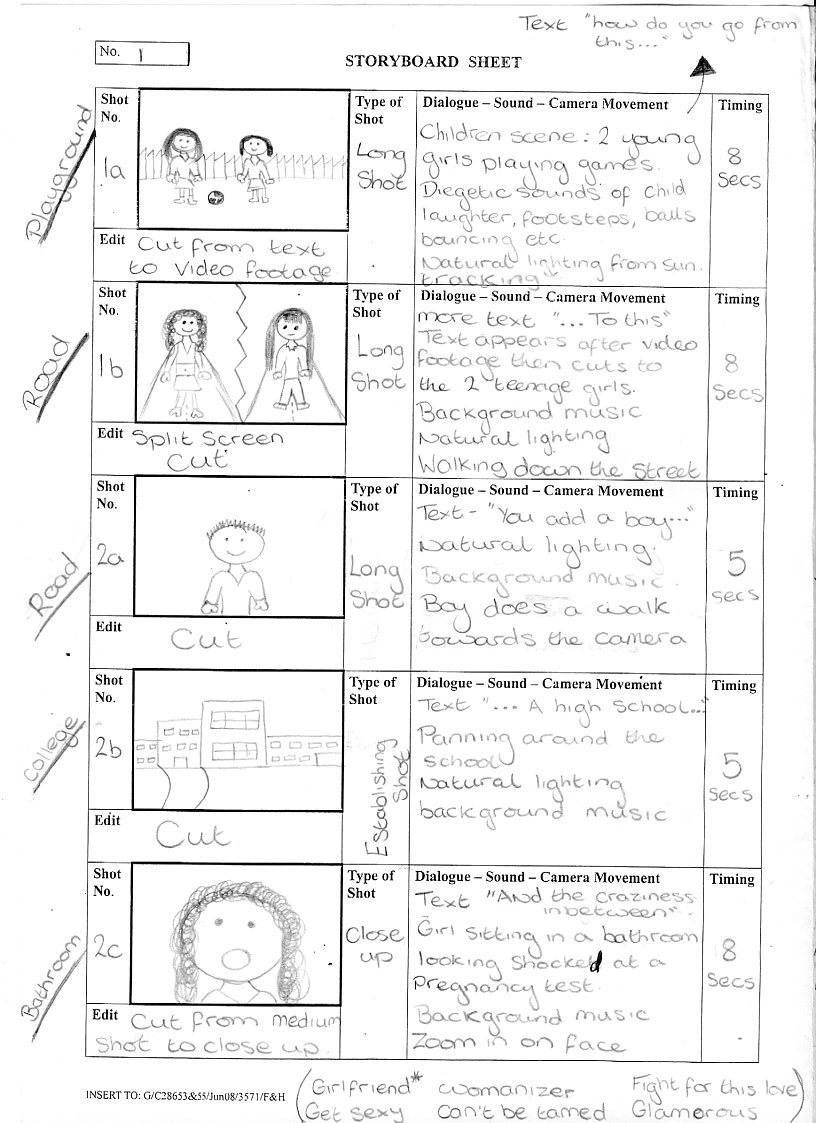 Text "how do you go from
this..."
No. 1
STORYBOARD SHEET
Playground
Shot
No.
1a
Type of
Shot
Long
Shot
Dialogue – Sound – Camera Movement
Children scene: 2 young
girls playing games.
Diegetic sounds of child
laughter, footsteps, balls
bouncing etc.
Natural lighting from sun.
tracking
Timing
8
Secs
Edit Cut from text
to video footage.
Road
Shot
No.
1b
Type of
Shot
Long
Shot
Dialogue – Sound – Camera Movement
more text "...To this"
Text appears after video
footage then cuts to
the 2 teenage girls.
Background music
Natural lighting
Walking down the street
Timing
8
Secs
Edit Split Screen
Cut
Road
Shot
No.
2a
Type of
Shot
Long
Shot
Dialogue – Sound – Camera Movement
Text - "You add a boy..."
Natural lighting.
Background music.
Boy does a walk
towards the camera
Timing
5
secs
Edit
Cut
College
Shot
No.
2b
Type of
Shot
Establishing
Shot
Dialogue – Sound – Camera Movement
Text "... A high school..."
Panning around the
school
Natural lighting
background music
Timing
5
Secs
Edit
Cut
Bathroom
Shot
No.
2c
Type of
Shot
Close
up
Dialogue – Sound – Camera Movement
Text "And the craziness
inbetween".
Girl sitting in a bathroom
looking shocked at a
pregnancy test.
Background music
Zoom in on face
Timing
8
Secs
Edit Cut from medium
shot to close up.
INSERT TO: G/C28653&55/Jun08/3571/F&H
(Girlfriend* womanizer Fight for this love)
Get sexy Can't be tamed Glamorous